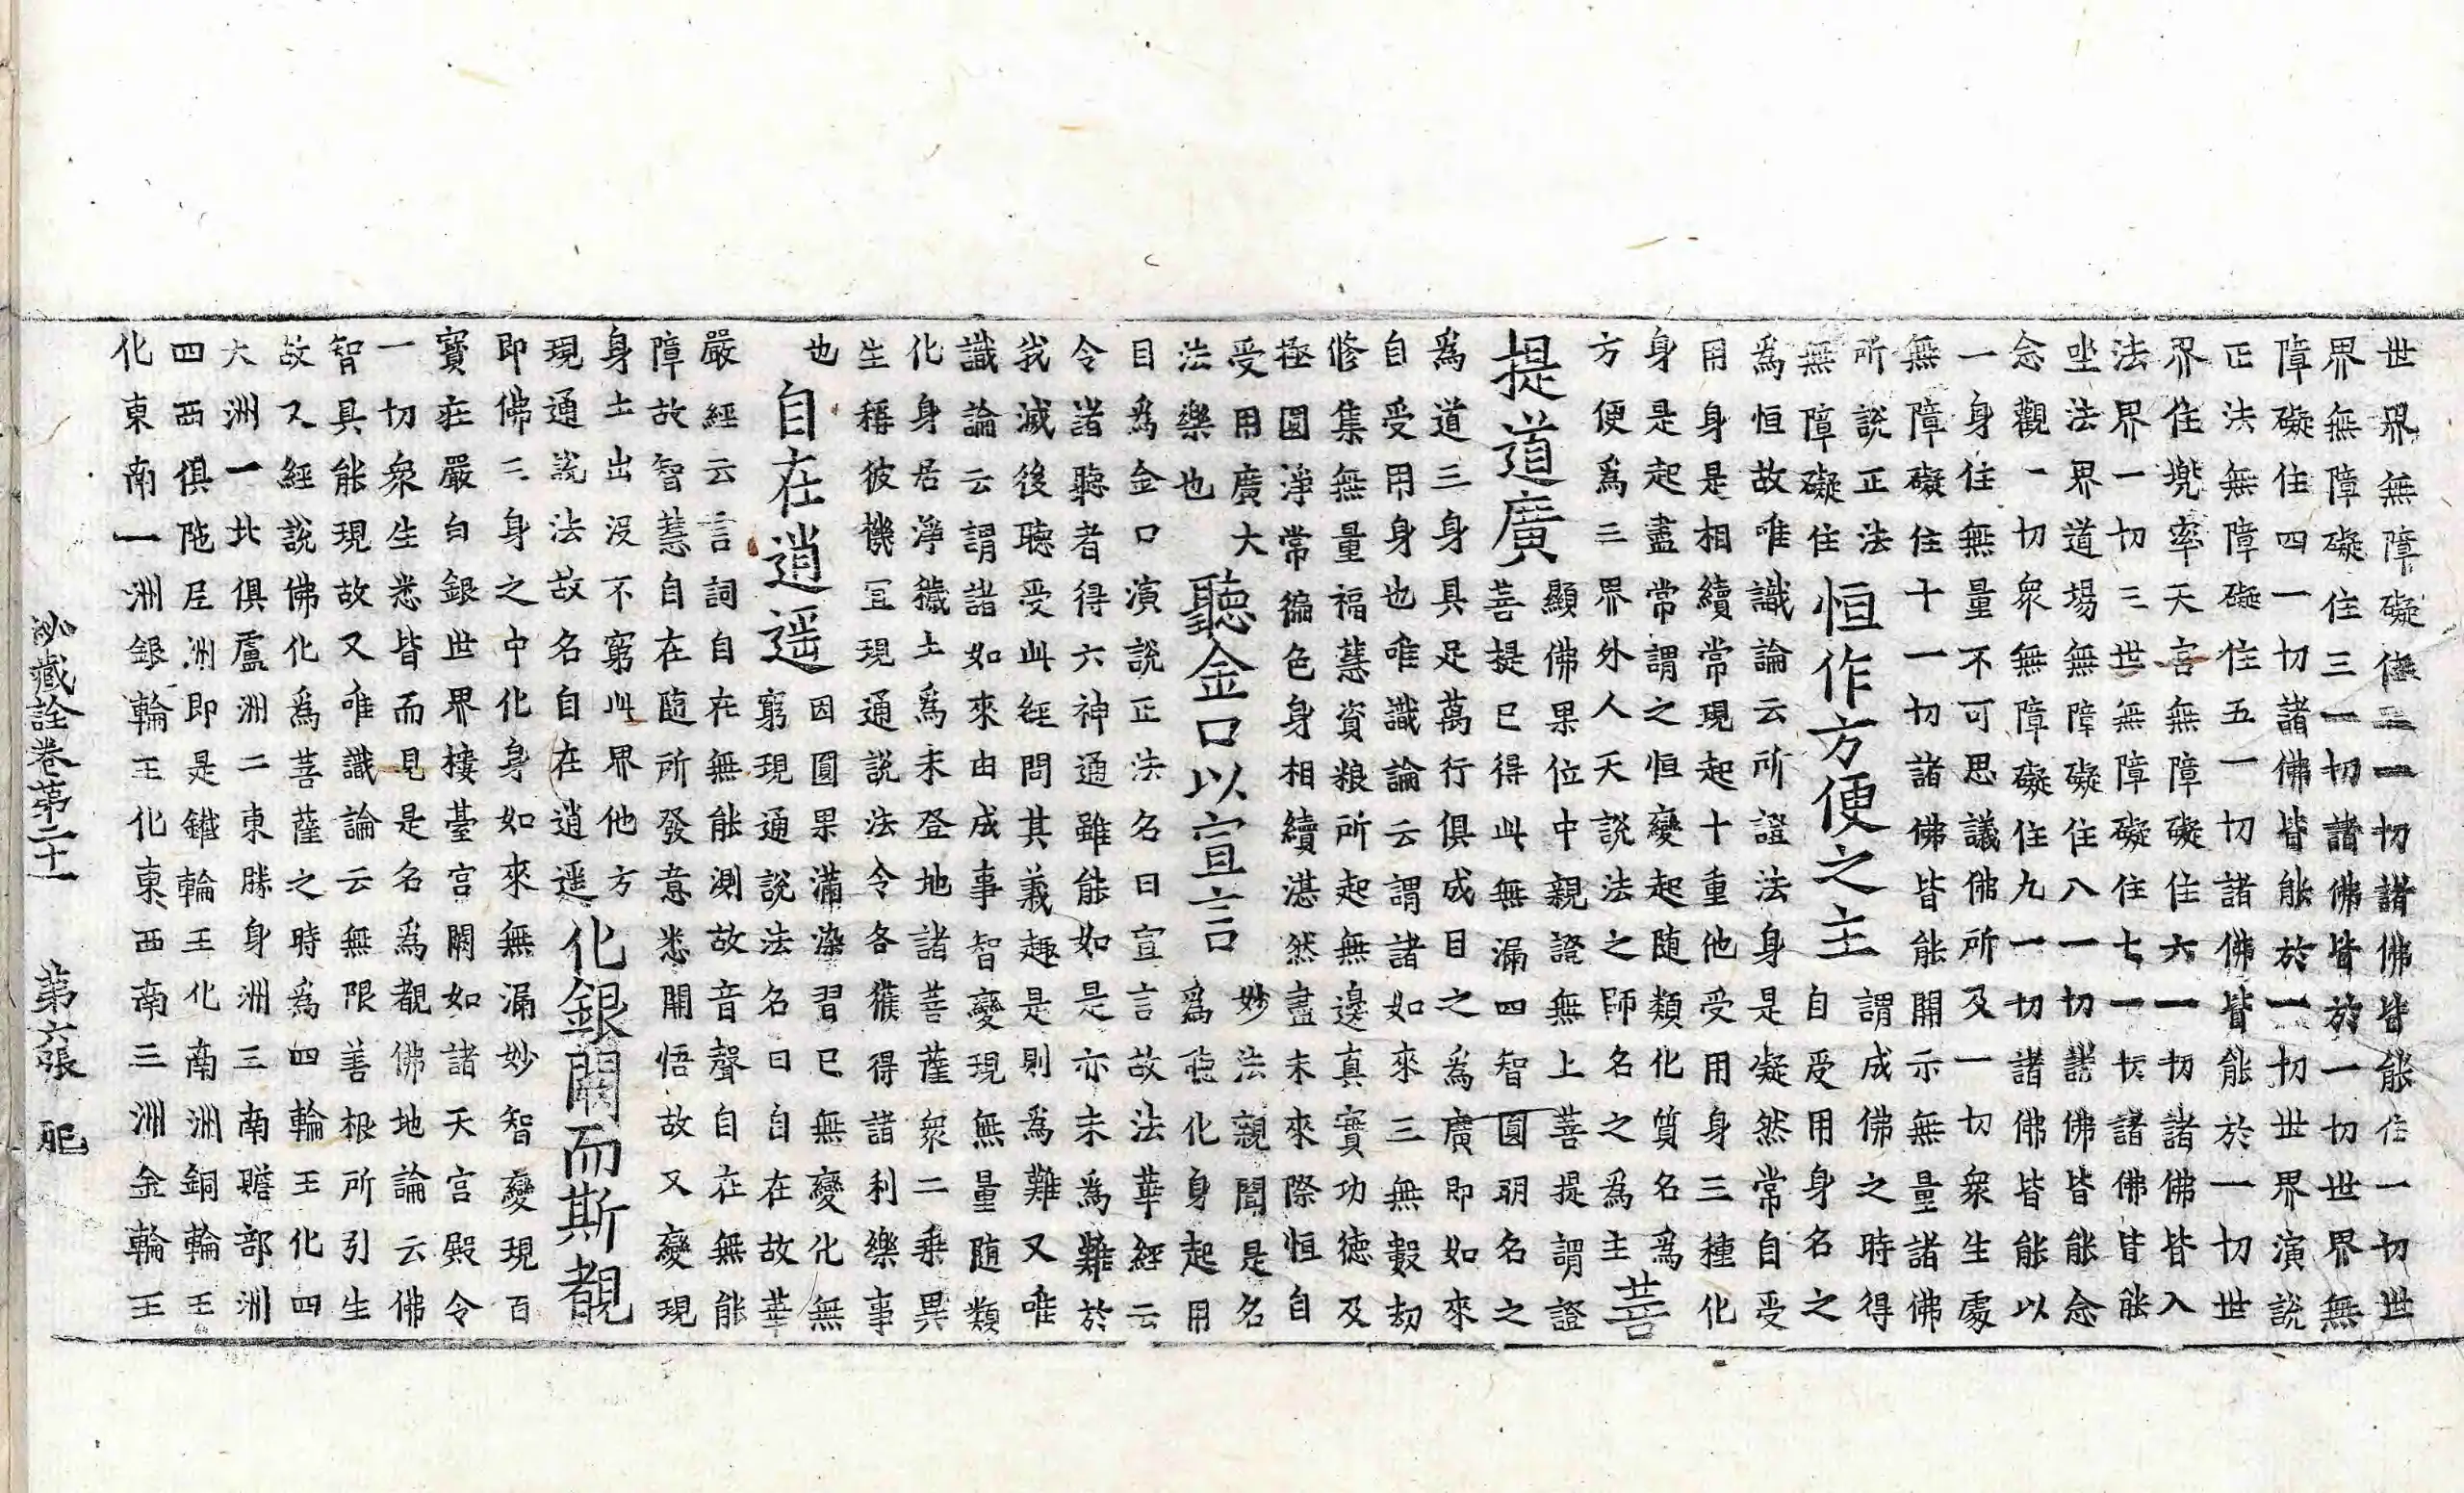 世界無障礙住二一切諸佛皆能住一切世
界無障礙住三一切諸佛皆於一切世界無
障礙住四一切諸佛皆能於一切世界演說
正法無障礙住五一切諸佛皆能於一切世
界住兠率天宫無障礙住六一切諸佛皆入
法界一切三世無障礙住七一切諸佛皆能
坐法界道場無障礙住八一切諸佛皆能念
念觀一切衆無障礙住九一切諸佛皆能以
一身住無量不可思議佛所及一切衆生處
無障礙住十一切諸佛皆能開示無量諸佛
所說正法
無障礙住
恒作方便之主
謂成佛之時得
自受用身名之
為恒故唯識論云所證法身是凝然常自受
用身是相續常現起十重他受用身三種化
身是起盡常謂之恒變起隨類化質名為
方便為三界外人天說法之師名之為主
菩
提道廣
顯佛果位中親證無上菩提謂證
菩提已得此無漏四智圓明名之
為道三身具足萬行俱成目之為廣即如來
自受用身也唯識論云謂諸如來三無數劫
修集無量福慧資粮所起無邊真實功德及
極圓淨常徧色身相續湛然盡未來際恒自
受用廣大
法樂也
聽金口以宣言
妙法親聞是名
為聽化身起用
目為金口演說正法名曰宣言故法華經云
令諸聽者得六神通雖能如是亦未為難於
我滅後聽受此經問其義趣是則為難又唯
識論云謂諸如來由成事智變現無量隨類
化身居淨穢土為未登地諸菩薩衆二乘異
生稱彼機宜現通說法令各獲得諸利樂事
也
自在逍遥
因圓果滿染習已無變化無
窮現通說法名曰自在故華
嚴經云言詞自在無能測故音聲自在無能
障故智慧自在隨所發意悉開悟故又變現
身土出沒不窮此界他方
現通說法故名自在逍遥
化銀闕而斯覩
即佛三身之中化身如來無漏妙智變現百
寶莊嚴白銀世界樓臺宫闕如諸天宫殿令
一切衆生悉皆而見是名為覩佛地論云佛
智具能現故又唯識論云無限善根所引生
故又經說佛化為菩薩之時為四輪王化四
大洲一北俱盧洲二東勝身洲三南贍部洲
四西俱陁尼洲即是鐵輪王化南洲銅輪王
化東南一洲銀輪王化東西南三洲金輪王
秘藏詮卷第二十一　第六張　肥